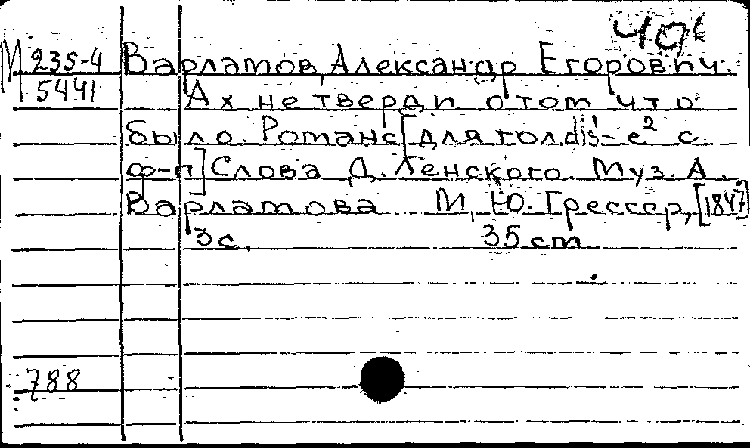 М 235-4
5441
Варламов, Александр Егорович.
Ах не тверди о том что
было. Романс [для гол. dis'-e² с
ф-п] Слова Д. Ленского. Муз. А.
Варламова М, Ю. Грессер, [1847]
3 с. 35 cm
788